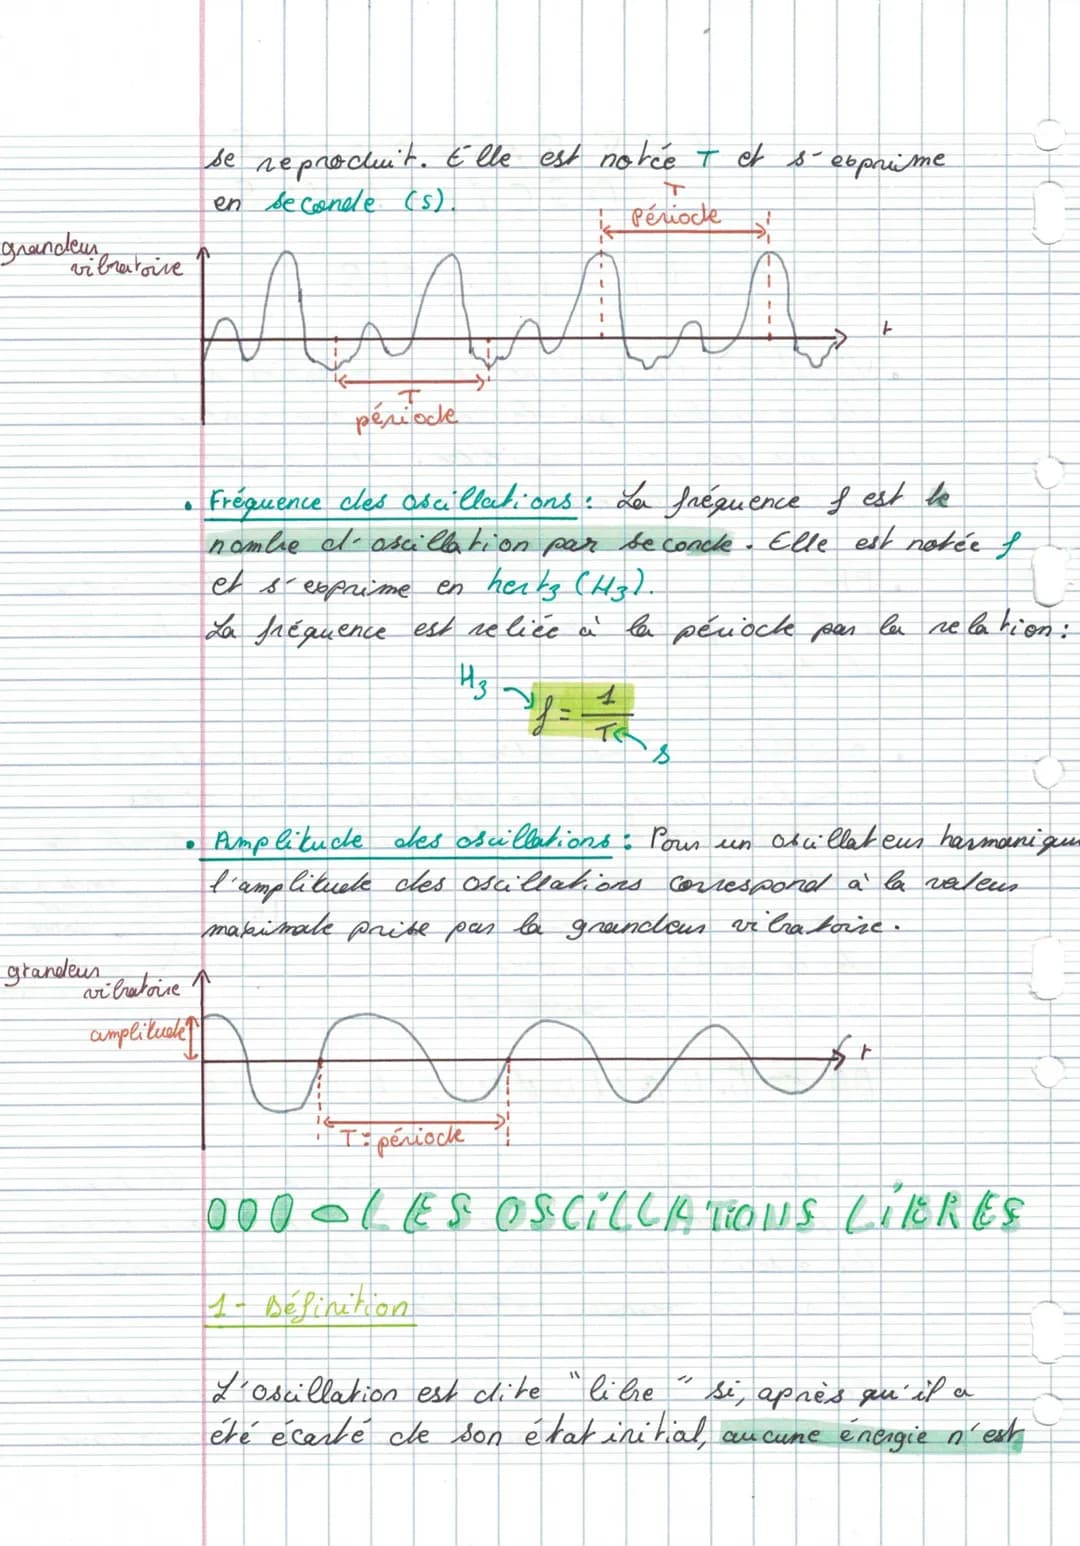 se reproduit. Elle est notée T et s'exprime
en seconde (s).
T
Période
grandeur
vibratoire
t
T
période
• Fréquence des oscillations : La fréquence f est le
nombre d'oscillation par seconde. Elle est notée f
et s'exprime en hertz (Hz).
La fréquence est reliée à la période par la relation :
Hz
f = 1/T
s
• Amplitude des oscillations : Pour un oscillateur harmonique
l'amplitude des oscillations correspond à la valeur
maximale prise par la grandeur vibratoire.
grandeur
vibratoire
amplitude
t
T = période
LES OSCILLATIONS LIBRES
1 - Définition
L'oscillation est dite "libre" si, après qu'il a
été écarté de son état initial, aucune énergie n'est